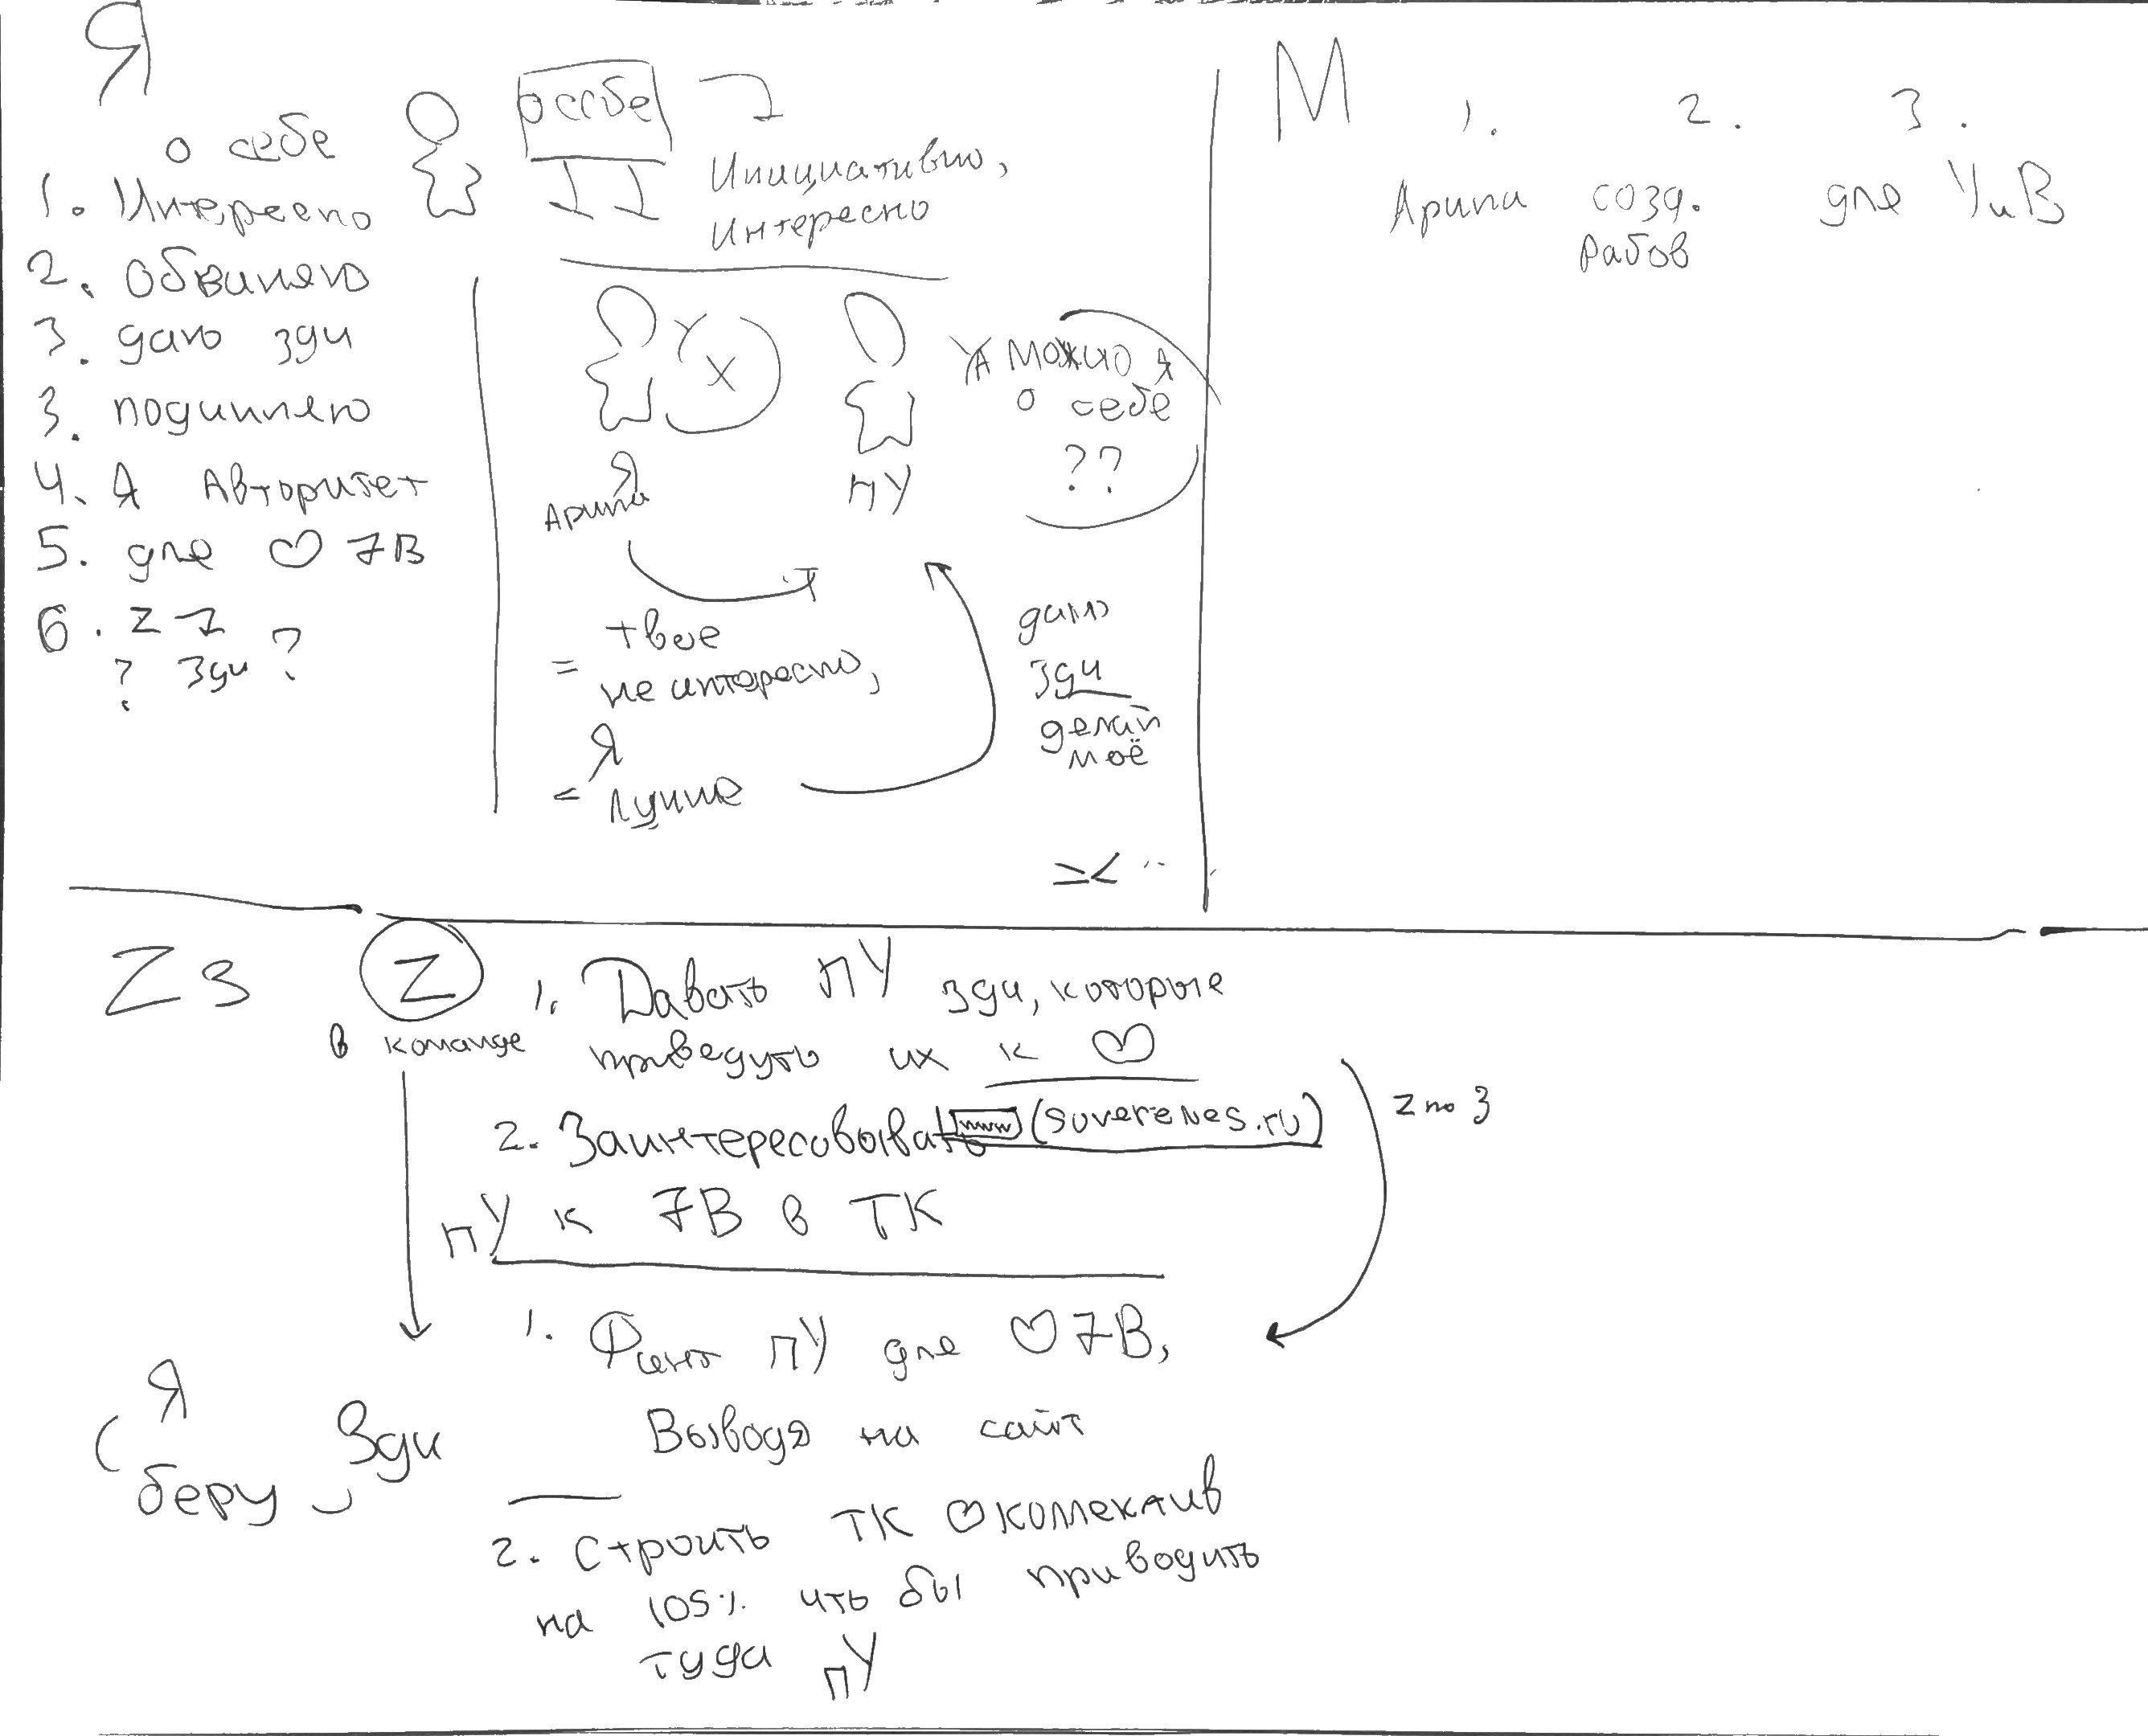 Я
о себе
1. Интересно
2. Обвиняю
3. даю зди
3. подчиняю
4. Я Авторитет
5. для ♡ 7В
6. Z-1
? Зди ?
о себе
Инициативно,
Интересно
Я
Арина
ПУ
Х
Можно я
о себе
??
= твое
не интересно,
Я
= лучше
даю
зди
делай
моё
М
1. 2. 3.
Арина созд. для УиВ
рабов
Z3
Z
в команде
1. Давать ПУ зди, которые
приведуть их к ♡
2. Заинтересовывать www (suverenes.ru)
ПУ к 7В в ТК
Z по 3
1. ПУ для ♡ 7В,
Выводя на сайт
2. Строить ТК ♡ коллектив
на 105% что бы приводить
туда ПУ
(Я
беру Зди